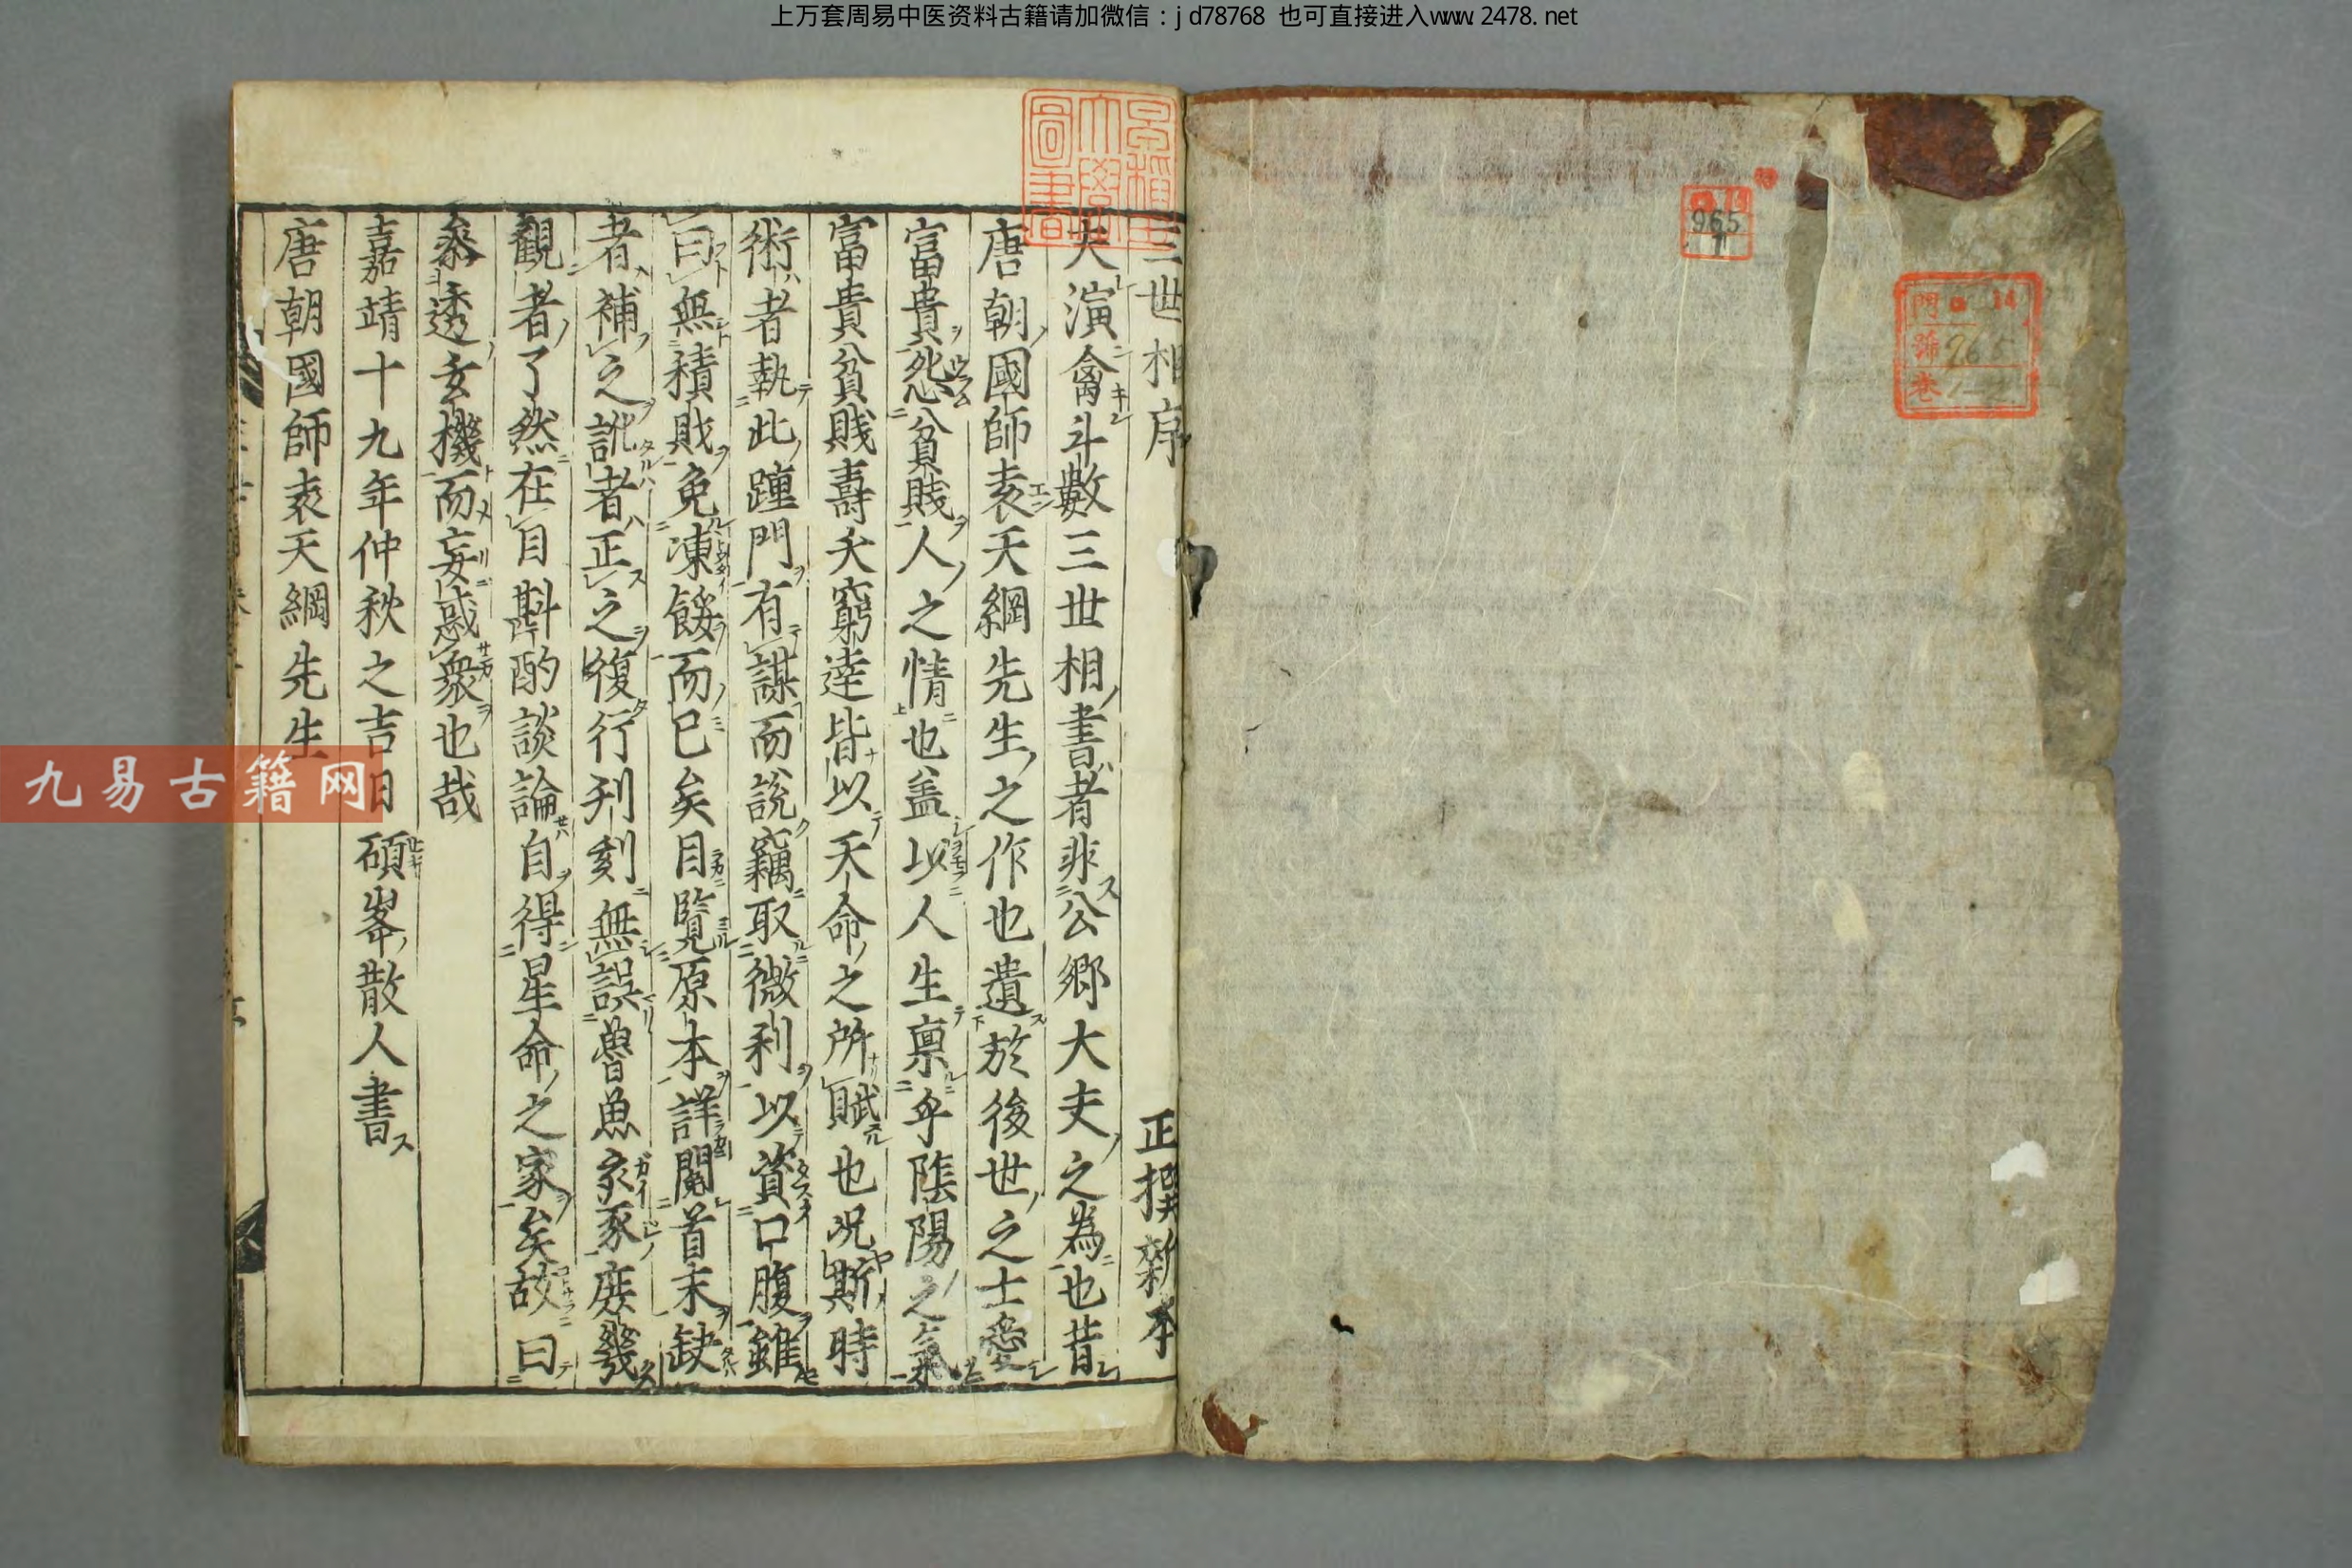 上万套周易中医资料古籍请加微信：jd78768 也可直接进入www.2478.net
三世相序 正撰新本
夫演禽斗數三世相書者非公郷大夫之為也昔
唐朝國師袁天綱先生之作也遺於後世之士愛
富貴怨貧賎人之情也盖以人生禀乎陰陽之氣
富貴貧賎壽夭窮達皆以天命之所賦也况斯時
術者執此踵門有謀而說竊取微利以資口腹雖
曰無積財免凍餒而已矣目覧原本詳閱首末缺
者補之訛者正之復行刋刻無誤魯魚亥豕庻幾
觀者了然在目斟酌談論自得星命之家矣故曰
叅透玄機而妄惑衆也哉
嘉靖十九年仲秋之吉日 碩峯散人書
唐朝國師袁天綱先生
早稲田大學圖書
965
1
門 14
號 965
巻 1-2
九易古籍网